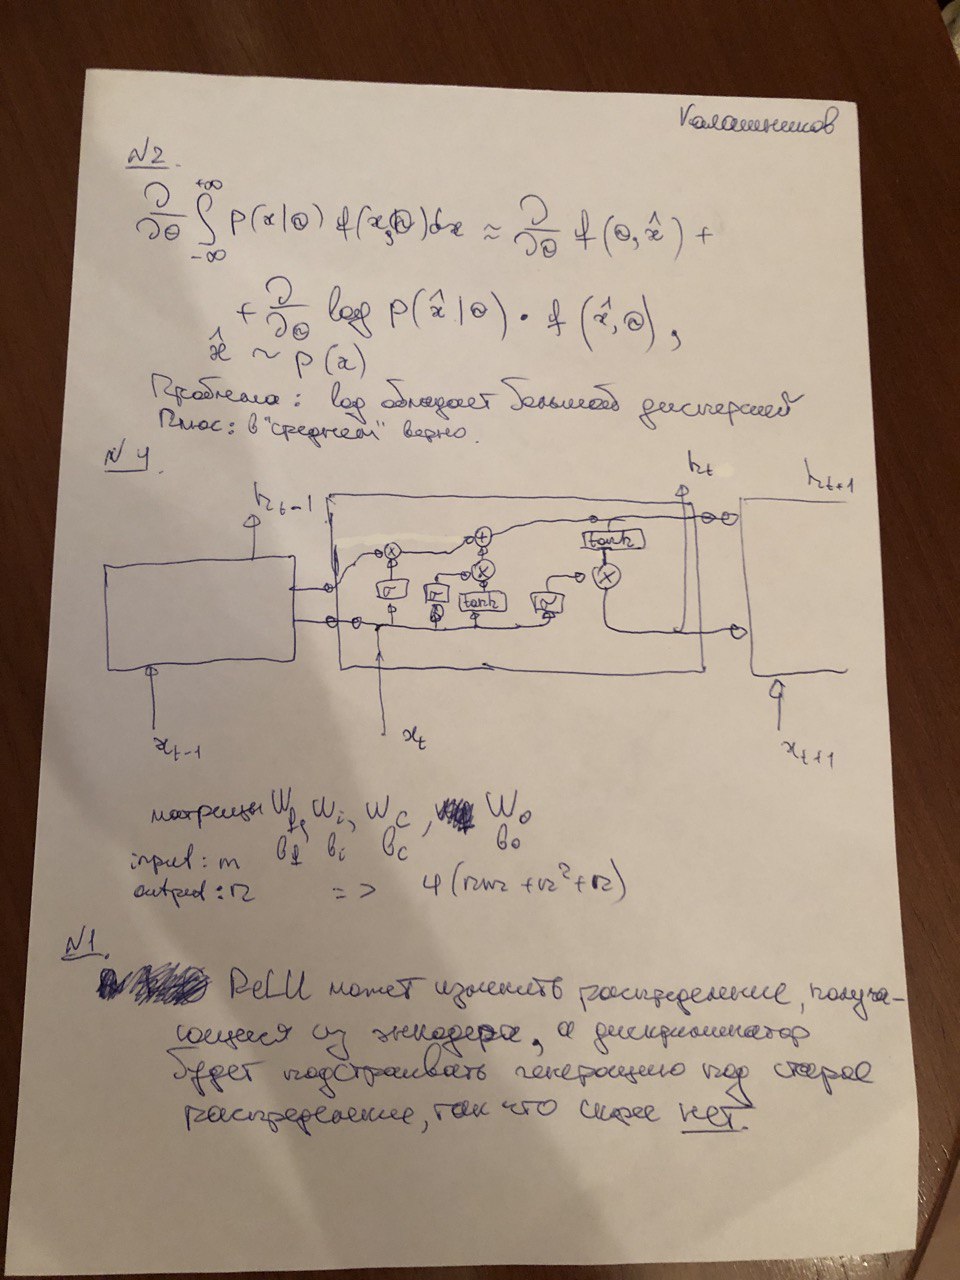 Калашников
N2.
∂/∂θ ∫_{-∞}^{+∞} p(x|θ) f(x,θ)dx ≈ ∂/∂θ f(θ, x̂) +
+ ∂/∂θ log p(x̂|θ) · f(x̂, θ),
x̂ ~ p(x)
Проблема: log обладает большой дисперсией
Плюс: в "среднем" верно.
N4.
h_{t-1}
h_t
h_{t+1}
× + tanh
σ σ × tanh σ ×
x_{t-1}
x_t
x_{t+1}
матрицы W_f, W_i, W_c, W_o
b_f b_i b_c b_o
input: m
output: n => 4(nm + n² + n)
N1.
ReLU может изменить распределение, получа-
ющееся из энкодера, а дискриминатор
будет подстраивать генерацию под старое
распределение, так что скорее нет.